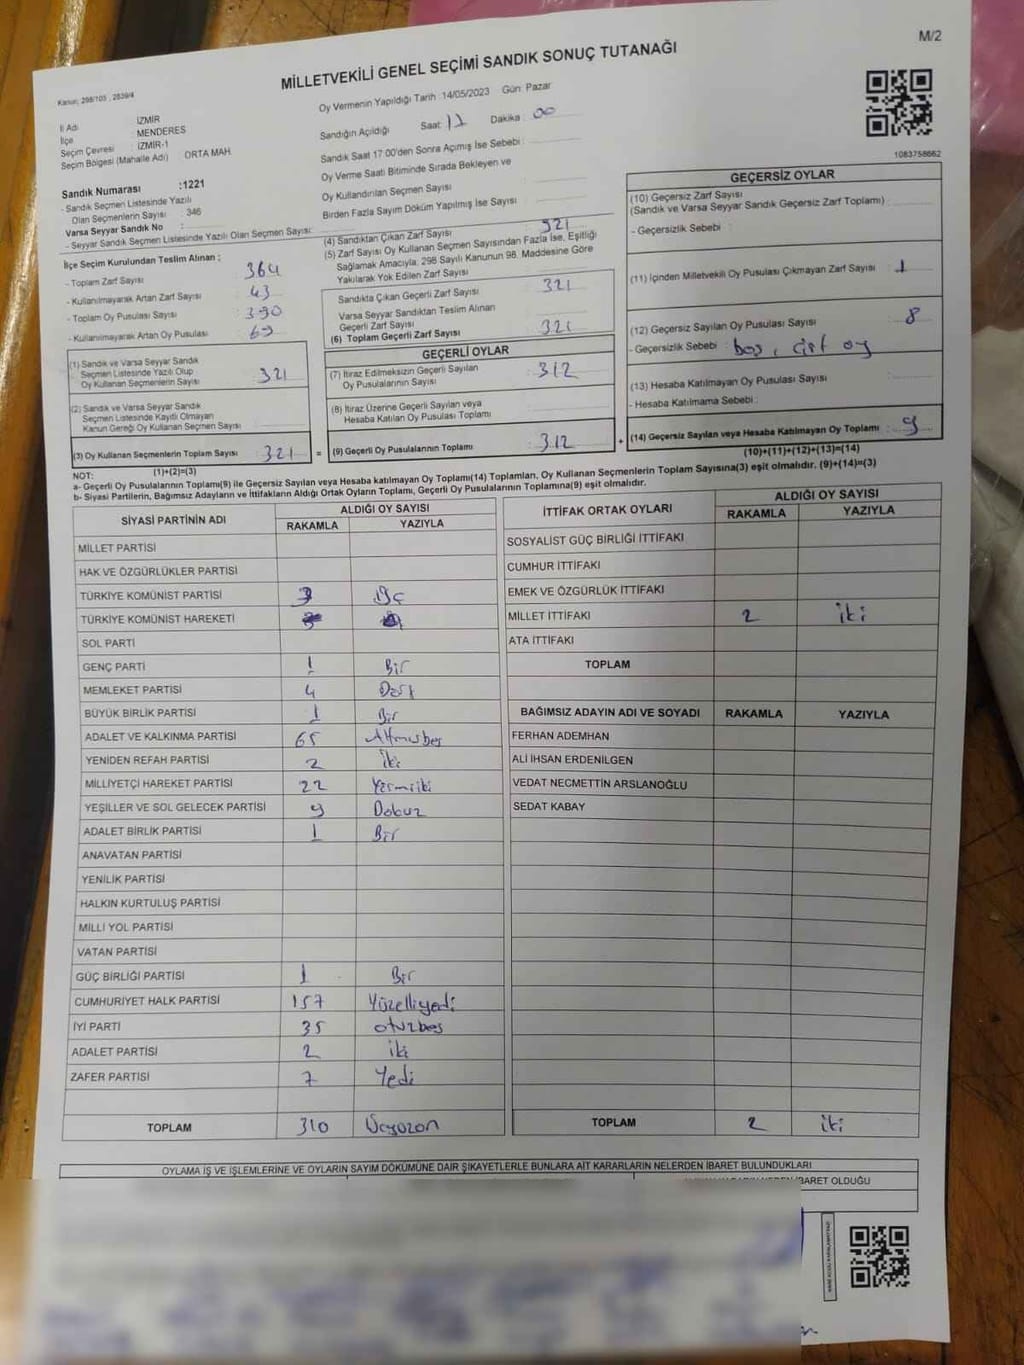 M/2
MİLLETVEKİLİ GENEL SEÇİMİ SANDIK SONUÇ TUTANAĞI
Kanun; 298/103 , 2839/4
İl Adı : İZMİR
İlçe : MENDERES
Seçim Çevresi : İZMİR-1
Seçim Bölgesi (Mahalle Adı) ORTA MAH.
Sandık Numarası :1221
- Sandık Seçmen Listesinde Yazılı
Olan Seçmenlerin Sayısı : 346
Varsa Seyyar Sandık No :
- Seyyar Sandık Seçmen Listesinde Yazılı Olan Seçmen Sayısı:
Oy Vermenin Yapıldığı Tarih :14/05/2023 Gün: Pazar
Sandığın Açıldığı Saat: 17 Dakika : 00
Sandık Saat 17.00'den Sonra Açımış İse Sebebi :
Oy Verme Saati Bitiminde Sırada Bekleyen ve
Oy Kullandırılan Seçmen Sayısı
Birden Fazla Sayım Döküm Yapılmış İse Sayısı
1083758662
İlçe Seçim Kurulundan Teslim Alınan ;
- Toplam Zarf Sayısı : 364
- Kullanılmayarak Artan Zarf Sayısı : 43
- Toplam Oy Pusulası Sayısı : 390
- Kullanılmayarak Artan Oy Pusulası : 69
(1) Sandık ve Varsa Seyyar Sandık
Seçmen Listesinde Yazılı Olup
Oy Kullanan Seçmenlerin Sayısı 321
(2) Sandık ve Varsa Seyyar Sandık
Seçmen Listesinde Kayıtlı Olmayan
Kanun Gereği Oy Kullanan Seçmen Sayısı
(3) Oy Kullanan Seçmenlerin Toplam Sayısı 321 =
(1)+(2)=(3)
(4) Sandıktan Çıkan Zarf Sayısı 321
(5) Zarf Sayısı Oy Kullanan Seçmen Sayısından Fazla İse, Eşitliği
Sağlamak Amacıyla, 298 Sayılı Kanunun 98. Maddesine Göre
Yakılarak Yok Edilen Zarf Sayısı
Sandıkta Çıkan Geçerli Zarf Sayısı 321
Varsa Seyyar Sandıktan Teslim Alınan
Geçerli Zarf Sayısı
(6) Toplam Geçerli Zarf Sayısı 321
GEÇERLİ OYLAR
(7) İtiraz Edilmeksizin Geçerli Sayılan
Oy Pusulalarının Sayısı 312
(8) İtiraz Üzerine Geçerli Sayılan veya
Hesaba Katılan Oy Pusulası Toplamı
(9) Geçerli Oy Pusulalarının Toplamı 312 +
GEÇERSİZ OYLAR
(10) Geçersiz Zarf Sayısı
(Sandık ve Varsa Seyyar Sandık Geçersiz Zarf Toplamı)
- Geçersizlik Sebebi :
(11) İçinden Milletvekili Oy Pusulası Çıkmayan Zarf Sayısı : 1
(12) Geçersiz Sayılan Oy Pusulası Sayısı : 8
- Geçersizlik Sebebi : boş, çift oy
(13) Hesaba Katılmayan Oy Pusulası Sayısı
- Hesaba Katılmama Sebebi :
(14) Geçersiz Sayılan veya Hesaba Katılmayan Oy Toplamı : 9
(10)+(11)+(12)+(13)=(14)
NOT:
a- Geçerli Oy Pusulalarının Toplamı(9) ile Geçersiz Sayılan veya Hesaba katılmayan Oy Toplamı(14) Toplamları, Oy Kullanan Seçmenlerin Toplam Sayısına(3) eşit olmalıdır. (9)+(14)=(3)
b- Siyasi Partilerin, Bağımsız Adayların ve İttifakların Aldığı Ortak Oyların Toplamı, Geçerli Oy Pusulalarının Toplamına(9) eşit olmalıdır.
SİYASİ PARTİNİN ADI ALDIĞI OY SAYISI
RAKAMLA YAZIYLA
MİLLET PARTİSİ
HAK VE ÖZGÜRLÜKLER PARTİSİ
TÜRKİYE KOMÜNİST PARTİSİ 3 Üç
TÜRKİYE KOMÜNİST HAREKETİ
SOL PARTİ
GENÇ PARTİ 1 Bir
MEMLEKET PARTİSİ 4 Dört
BÜYÜK BİRLİK PARTİSİ 1 Bir
ADALET VE KALKINMA PARTİSİ 65 Altmışbeş
YENİDEN REFAH PARTİSİ 2 İki
MİLLİYETÇİ HAREKET PARTİSİ 22 Yirmiiki
YEŞİLLER VE SOL GELECEK PARTİSİ 9 Dokuz
ADALET BİRLİK PARTİSİ 1 Bir
ANAVATAN PARTİSİ
YENİLİK PARTİSİ
HALKIN KURTULUŞ PARTİSİ
MİLLİ YOL PARTİSİ
VATAN PARTİSİ
GÜÇ BİRLİĞİ PARTİSİ 1 Bir
CUMHURİYET HALK PARTİSİ 157 Yüzelliyedi
İYİ PARTİ 35 otuzbeş
ADALET PARTİSİ 2 iki
ZAFER PARTİSİ 7 Yedi
TOPLAM 310 Üçyüzon
İTTİFAK ORTAK OYLARI ALDIĞI OY SAYISI
RAKAMLA YAZIYLA
SOSYALİST GÜÇ BİRLİĞİ İTTİFAKI
CUMHUR İTTİFAKI
EMEK VE ÖZGÜRLÜK İTTİFAKI
MİLLET İTTİFAKI 2 iki
ATA İTTİFAKI
TOPLAM
BAĞIMSIZ ADAYIN ADI VE SOYADI RAKAMLA YAZIYLA
FERHAN ADEMHAN
ALİ İHSAN ERDENİLGEN
VEDAT NECMETTİN ARSLANOĞLU
SEDAT KABAY
TOPLAM 2 iki
OYLAMA İŞ VE İŞLEMLERİNE VE OYLARIN SAYIM DÖKÜMÜNE DAİR ŞİKAYETLERLE BUNLARA AİT KARARLARIN NELERDEN İBARET BULUNDUKLARI
İBARET OLDUĞU